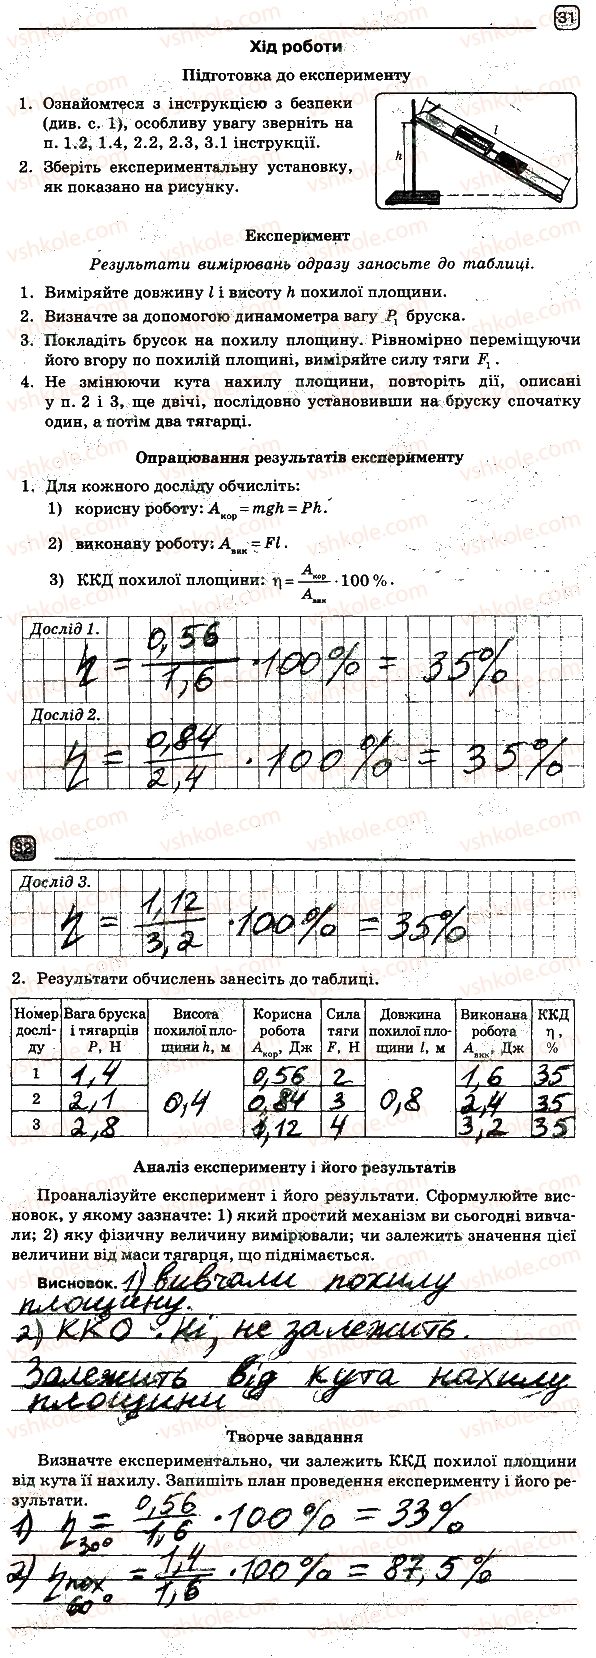 31
Хід роботи
Підготовка до експерименту
1. Ознайомтеся з інструкцією з безпеки
(див. с. 1), особливу увагу зверніть на
п. 1.2, 1.4, 2.2, 2.3, 3.1 інструкції.
2. Зберіть експериментальну установку,
як показано на рисунку.
l
h
Експеримент
Результати вимірювань одразу заносьте до таблиці.
1. Виміряйте довжину l і висоту h похилої площини.
2. Визначте за допомогою динамометра вагу P₁ бруска.
3. Покладіть брусок на похилу площину. Рівномірно переміщуючи
його вгору по похилій площині, виміряйте силу тяги F₁.
4. Не змінюючи кута нахилу площини, повторіть дії, описані
у п. 2 і 3, ще двічі, послідовно установивши на бруску спочатку
один, а потім два тягарці.
Опрацювання результатів експерименту
1. Для кожного досліду обчисліть:
1) корисну роботу: Aкор = mgh = Ph.
2) виконану роботу: Aвик = Fl.
3) ККД похилої площини: η = Aкор / Aвик · 100 %.
Дослід 1.
η = 0,56 / 1,6 · 100% = 35%
Дослід 2.
η = 0,84 / 2,4 · 100% = 35%
32
Дослід 3.
η = 1,12 / 3,2 · 100% = 35%
2. Результати обчислень занесіть до таблиці.
Номер досліду | Вага бруска і тягарців P, Н | Висота похилої площини h, м | Корисна робота Aкор, Дж | Сила тяги F, Н | Довжина похилої площини l, м | Виконана робота Aвик, Дж | ККД η, %
1 | 1,4 | 0,4 | 0,56 | 2 | 0,8 | 1,6 | 35
2 | 2,1 | 0,84 | 3 | 2,4 | 35
3 | 2,8 | 1,12 | 4 | 3,2 | 35
Аналіз експерименту і його результатів
Проаналізуйте експеримент і його результати. Сформулюйте вис-
новок, у якому зазначте: 1) який простий механізм ви сьогодні вивча-
ли; 2) яку фізичну величину вимірювали; чи залежить значення цієї
величини від маси тягарця, що піднімається.
Висновок. 1) вивчали похилу
площину.
2) ККО. Кі, не залежить.
Залежить від кута нахилу
площини
Творче завдання
Визначте експериментально, чи залежить ККД похилої площини
від кута її нахилу. Запишіть план проведення експерименту і його ре-
зультати.
1) η 30° = 0,56 / 1,6 · 100% = 33%
2) η пох 60° = 1,4 / 1,6 · 100% = 87,5%